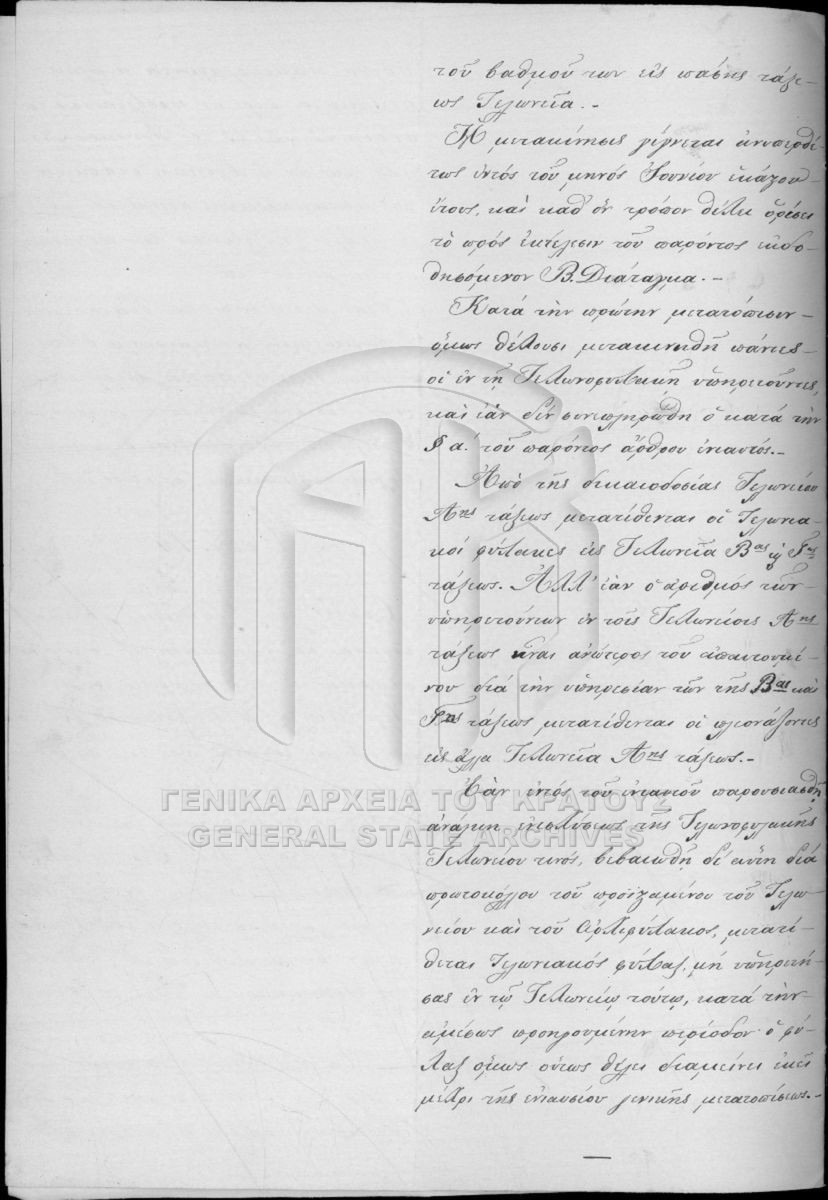 τοῦ βαθμοῦ των εἰς πάσης τάξε-
ως Τελωνεῖα.-
Ἡ μετακίνησις γίγνεται ἀνυπερθέ-
τως ἐντός τοῦ μηνός Ἰουνίου ἑκάστου
ἔτους, καὶ καθ' ὅν τρόπον θέλει ὁρίσει
τὸ πρός ἐκτέλεσιν τοῦ παρόντος ἐκδο-
θησόμενον Β. Διάταγμα.-
Κατά τήν πρώτην μετατόπισιν
ὅμως θέλουσι μετακινηθῆ πάντες
οἱ ἐν τῇ Τελωνοφυλακῇ ὑπηρετοῦντες,
καὶ ἐάν δέν συνεπληρώθη ὁ κατά τήν
§ α! τοῦ παρόντος ἄρθρου ἐνιαυτός.-
Ἀπὸ τῆς δικαιοδοσίας Τελωνείου
Αης τάξεως μετατίθενται οἱ Τελωνια-
κοί φύλακες εἰς Τελωνεῖα Βας ἤ Γης
τάξεως. Ἀλλ' ἐάν ὁ ἀριθμός τῶν
ὑπηρετούντων ἐν τοῖς Τελωνείοις Αης
τάξεως ἦναι ἀνώτερος τοῦ ἀπαιτουμέ-
νου διά τήν ὑπηρεσίαν τῶν τῆς Βας καὶ
Γης τάξεως μετατίθενται οἱ πλεονάζοντες
εἰς ἄλλα Τελωνεῖα Αης τάξεως.-
Ἐάν ἐντός τοῦ ἐνιαυτοῦ παρουσιασθῇ
ΓΕΝΙΚΑ ΑΡΧΕΙΑ ΤΟΥ ΚΡΑΤΟΥΣ
ἀνάγκη ἐνισχύσεως τῆς Τελωνοφυλακῆς
GENERAL STATE ARCHIVES
Τελωνείου τινός, βεβαιωθῇ δέ αὕτη διά
πρωτοκόλλου τοῦ προϊσταμένου τοῦ Τελω-
νείου καὶ τοῦ Ἀρχιφύλακος, μετατί-
θεται Τελωνιακός φύλαξ, μή ὑπηρετή-
σας ἐν τῷ Τελωνείῳ τούτῳ, κατά τήν
ἀμέσως προηγουμένην περίοδον ὁ φύ-
λαξ ὅμως οὗτος θέλει διαμείνει ἐκεῖ
μέχρι τῆς ἐνιαυσίου γενικῆς μετατοπίσεως.-